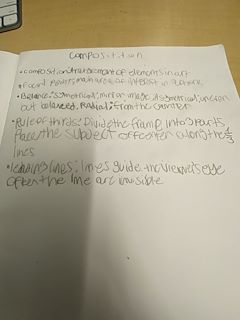 composition
• composition: arrangement of elements in art
• Focal point: main area of interest in
• Balance: symetrical: mirror image, Asymetrical: uneven
but balanced, Radial: From the center
• Rule of thirds: Divide the frame into 3 parts
Place the subject off center along the
lines
• leading lines: lines guide the viewer's eye
often the line art invisible